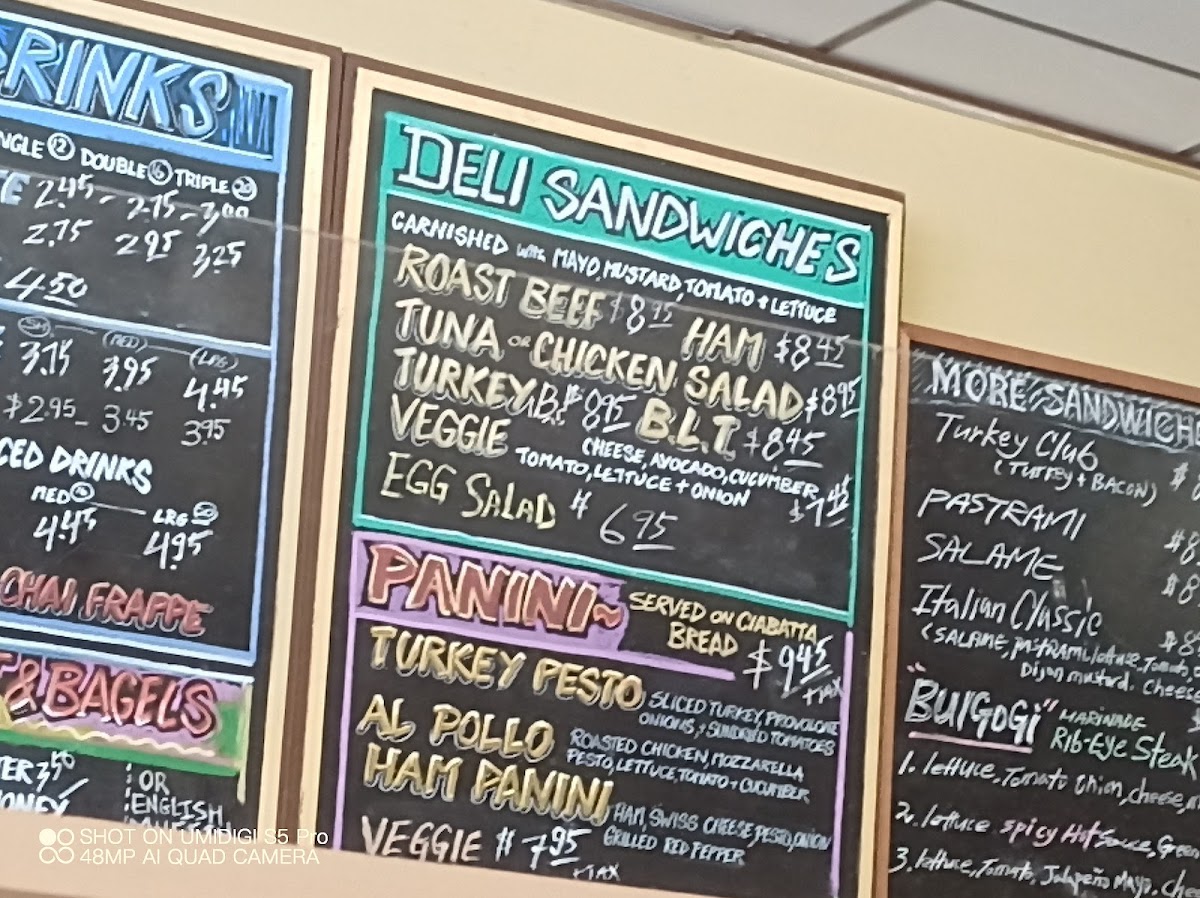 DRINKS
12 DOUBLE 16 TRIPLE 20
2.45 - 2.75 - 3.00
2.75 2.95 3.25
4.50
SM (MED) (LRG)
3.75 3.95 4.45
$2.95 - 3.45 3.95
ICED DRINKS
MED LRG
4.45 4.95
CHAI FRAPPE
& BAGELS
3.50
OR
ENGLISH
DELI SANDWICHES
GARNISHED with MAYO, MUSTARD, TOMATO + LETTUCE
ROAST BEEF $8.95 HAM $8.45
TUNA OR CHICKEN SALAD $8.95
TURKEY B. $8.95 B.L.T. $8.45
VEGGIE CHEESE, AVOCADO, CUCUMBER,
TOMATO, LETTUCE + ONION $7.45
EGG SALAD $ 6.95
PANINI~ SERVED ON CIABATTA
BREAD $9.45
+TAX
TURKEY PESTO SLICED TURKEY, PROVOLONE
ONIONS, + SUNDRIED TOMATOES
AL POLLO ROASTED CHICKEN, MOZZARELLA
PESTO, LETTUCE, TOMATO + CUCUMBER
HAM PANINI HAM SWISS CHEESE, PESTO, ONION
GRILLED RED PEPPER
VEGGIE $7.95
+TAX
MORE SANDWICHE
Turkey Club $
(TURKEY + BACON)
PASTRAMI $8
SALAME $8
Italian Classic $8
(SALAME, PASTRAMI, lettuce, Tomato,
Dijon mustard. Cheese
"BUlGOGI" MARINADE
RIB-EYE Steak
1. lettuce, Tomato Onion, cheese,
2. lettuce spicy Hot Sauce, Green
3. lettuce, Tomato, Jalapeño Mayo. Che
SHOT ON UMIDIGI S5 Pro
48MP AI QUAD CAMERA